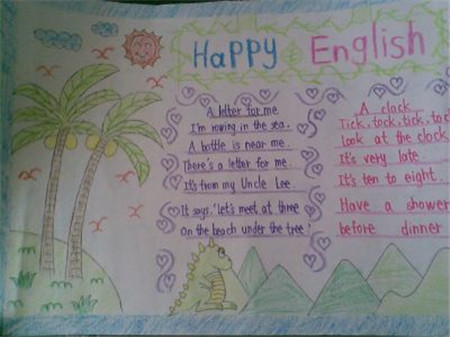 HaPPy English
A letter for me
I'm rowing in the sea.
A bottle is near me.
There's a letter for me.
It's from my Uncle Lee.
It says, "let's meet at three
on the beach under the tree."
A clock
Tick, tock, tick, toc
Look at the clock
It's very late.
It's ten to eight.
Have a shower
before dinner